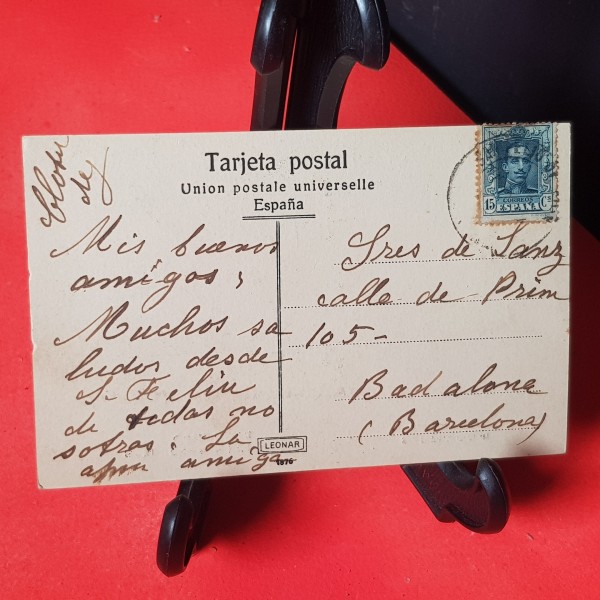 Tarjeta postal
Union postale universelle
España
15 Cs
ESPAÑA
Mis buenos
amigos;
Muchos sa
ludos desde
S. Feliu
de todas no
sotras. La
amiga
Sres de Sanz
calle de Prim
105-
Badalona
(Barcelona)
LEONAR
1376